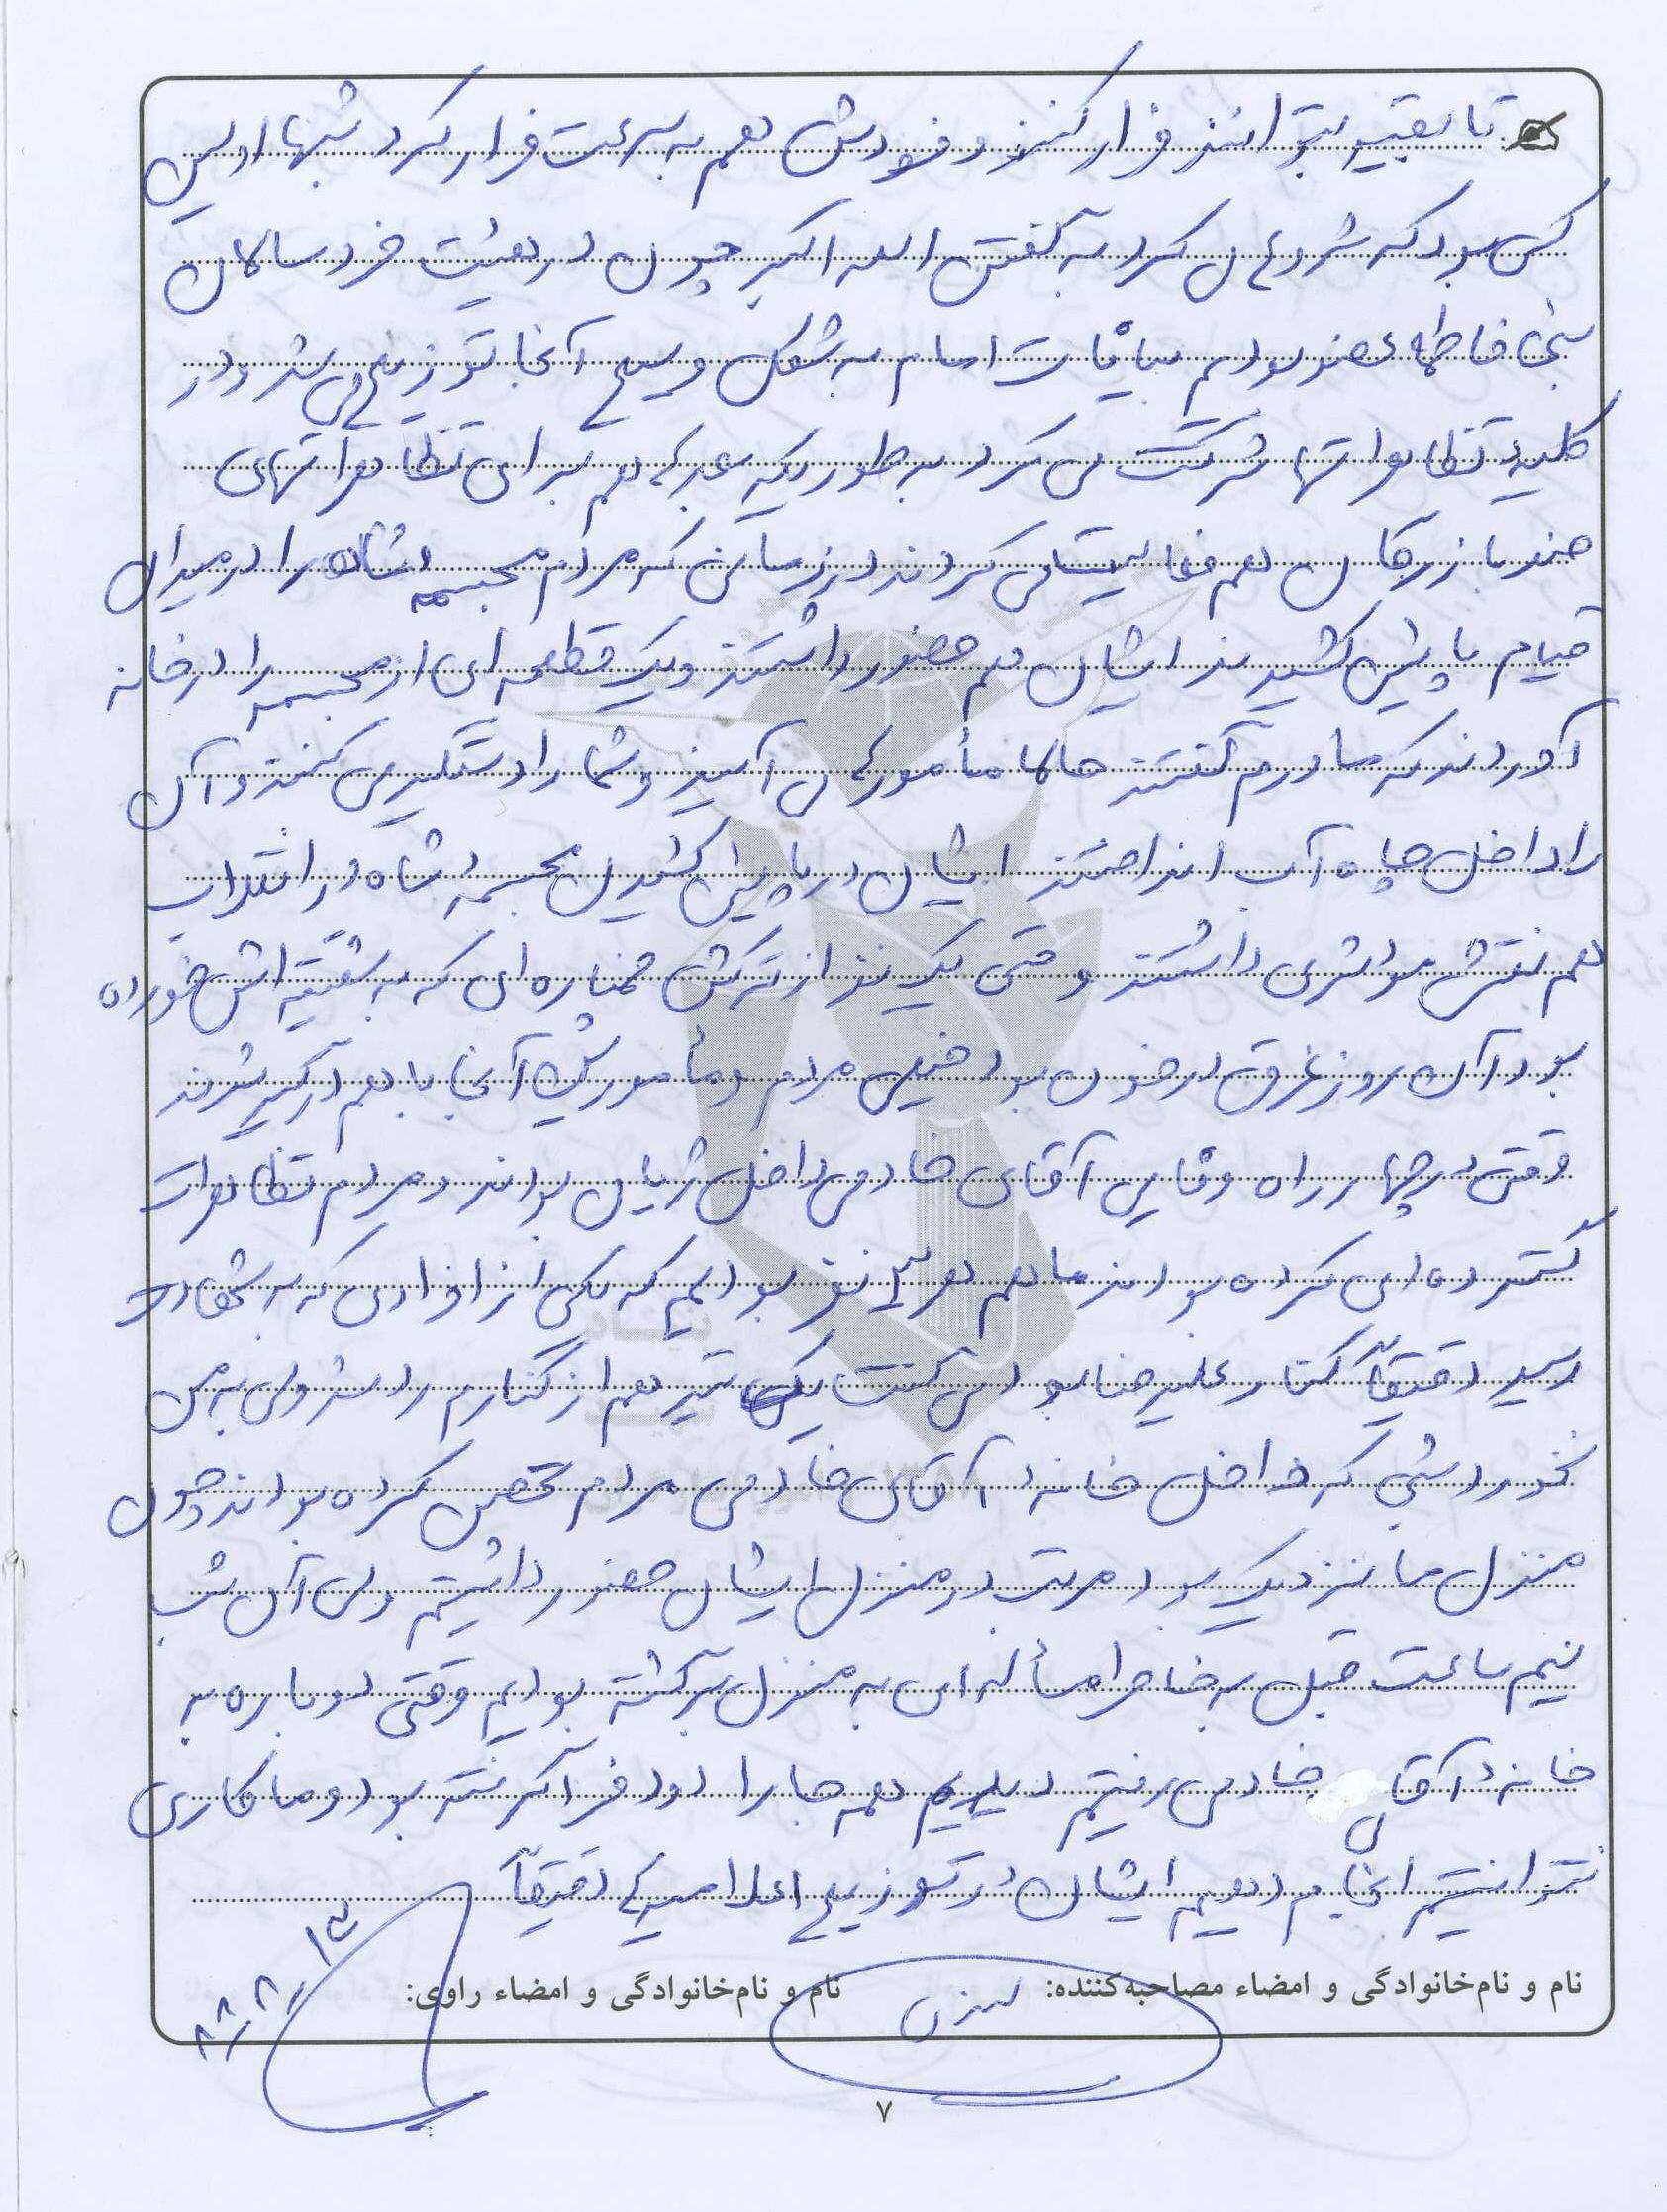 تا بقیه بتوانند فرار کنند و خودش هم به سرعت فرار کرد شبها اولین
کسی بود که شروع می کرد به گفتن الله اکبر چون در هیئت خردسالان
بنی فاطمه عضو بودیم بیانات امام به شکل وسیع آنجا توزیع می شد و در
کلیه تظاهراتها شرکت می کرد به طوریکه بچه ها هم برای تظاهراتهای
ضد بازرگان هم فعالیت می کردند در زمانی که مردم مجسمه شاه را در میدان
قیام پایین کشیدند ایشان هم حضور داشتند و یک قطعه ای از مجسمه را در خانه
آوردند که مادرم گفتند حالا مأمورها می آیند و شما را دستگیر می کنند و آن
را داخل چاه آب انداختند ایشان در پایین کشیدن مجسمه شاه در انقلاب
هم نقش مؤثری داشتند و حتی یک نفر از ترکش خمپاره ای که به شقیقه اش خورده
بود آن روز غرق در خون بود خیلی مردم و مأمورین آنجا با هم درگیر شدند
وقتی در چهارراه وفایی آقای خادمی داخل زبان بودند و مردم تظاهرات
گسترده ای کرده بودند ما هم هر ۳ نفر بودیم که یکی از افرادی که به شهادت
رسید دقیقاً کنار علیرضا بود می گفت یک تیر هم از کنارم رد شد ولی به من
نخورد شبی که داخل خانه آقای خادمی مردم تحصن کرده بودند و چون
منزل ما نزدیک بود مرتب در منزل ایشان حضور داشتیم ولی آن شب
نیم ساعت قبل به خاطر مسأله ای به منزل برگشته بودیم وقتی دوباره به
خانه آقای خادمی رفتیم دیدیم همه جا را دود فرا گرفته بود و ما کاری
نتوانستیم انجام دهیم ایشان در توزیع اعلامیه ها دقیقاً
نام و نام‌خانوادگی و امضاء مصاحبه‌کننده: نام و نام‌خانوادگی و امضاء راوی:
۷